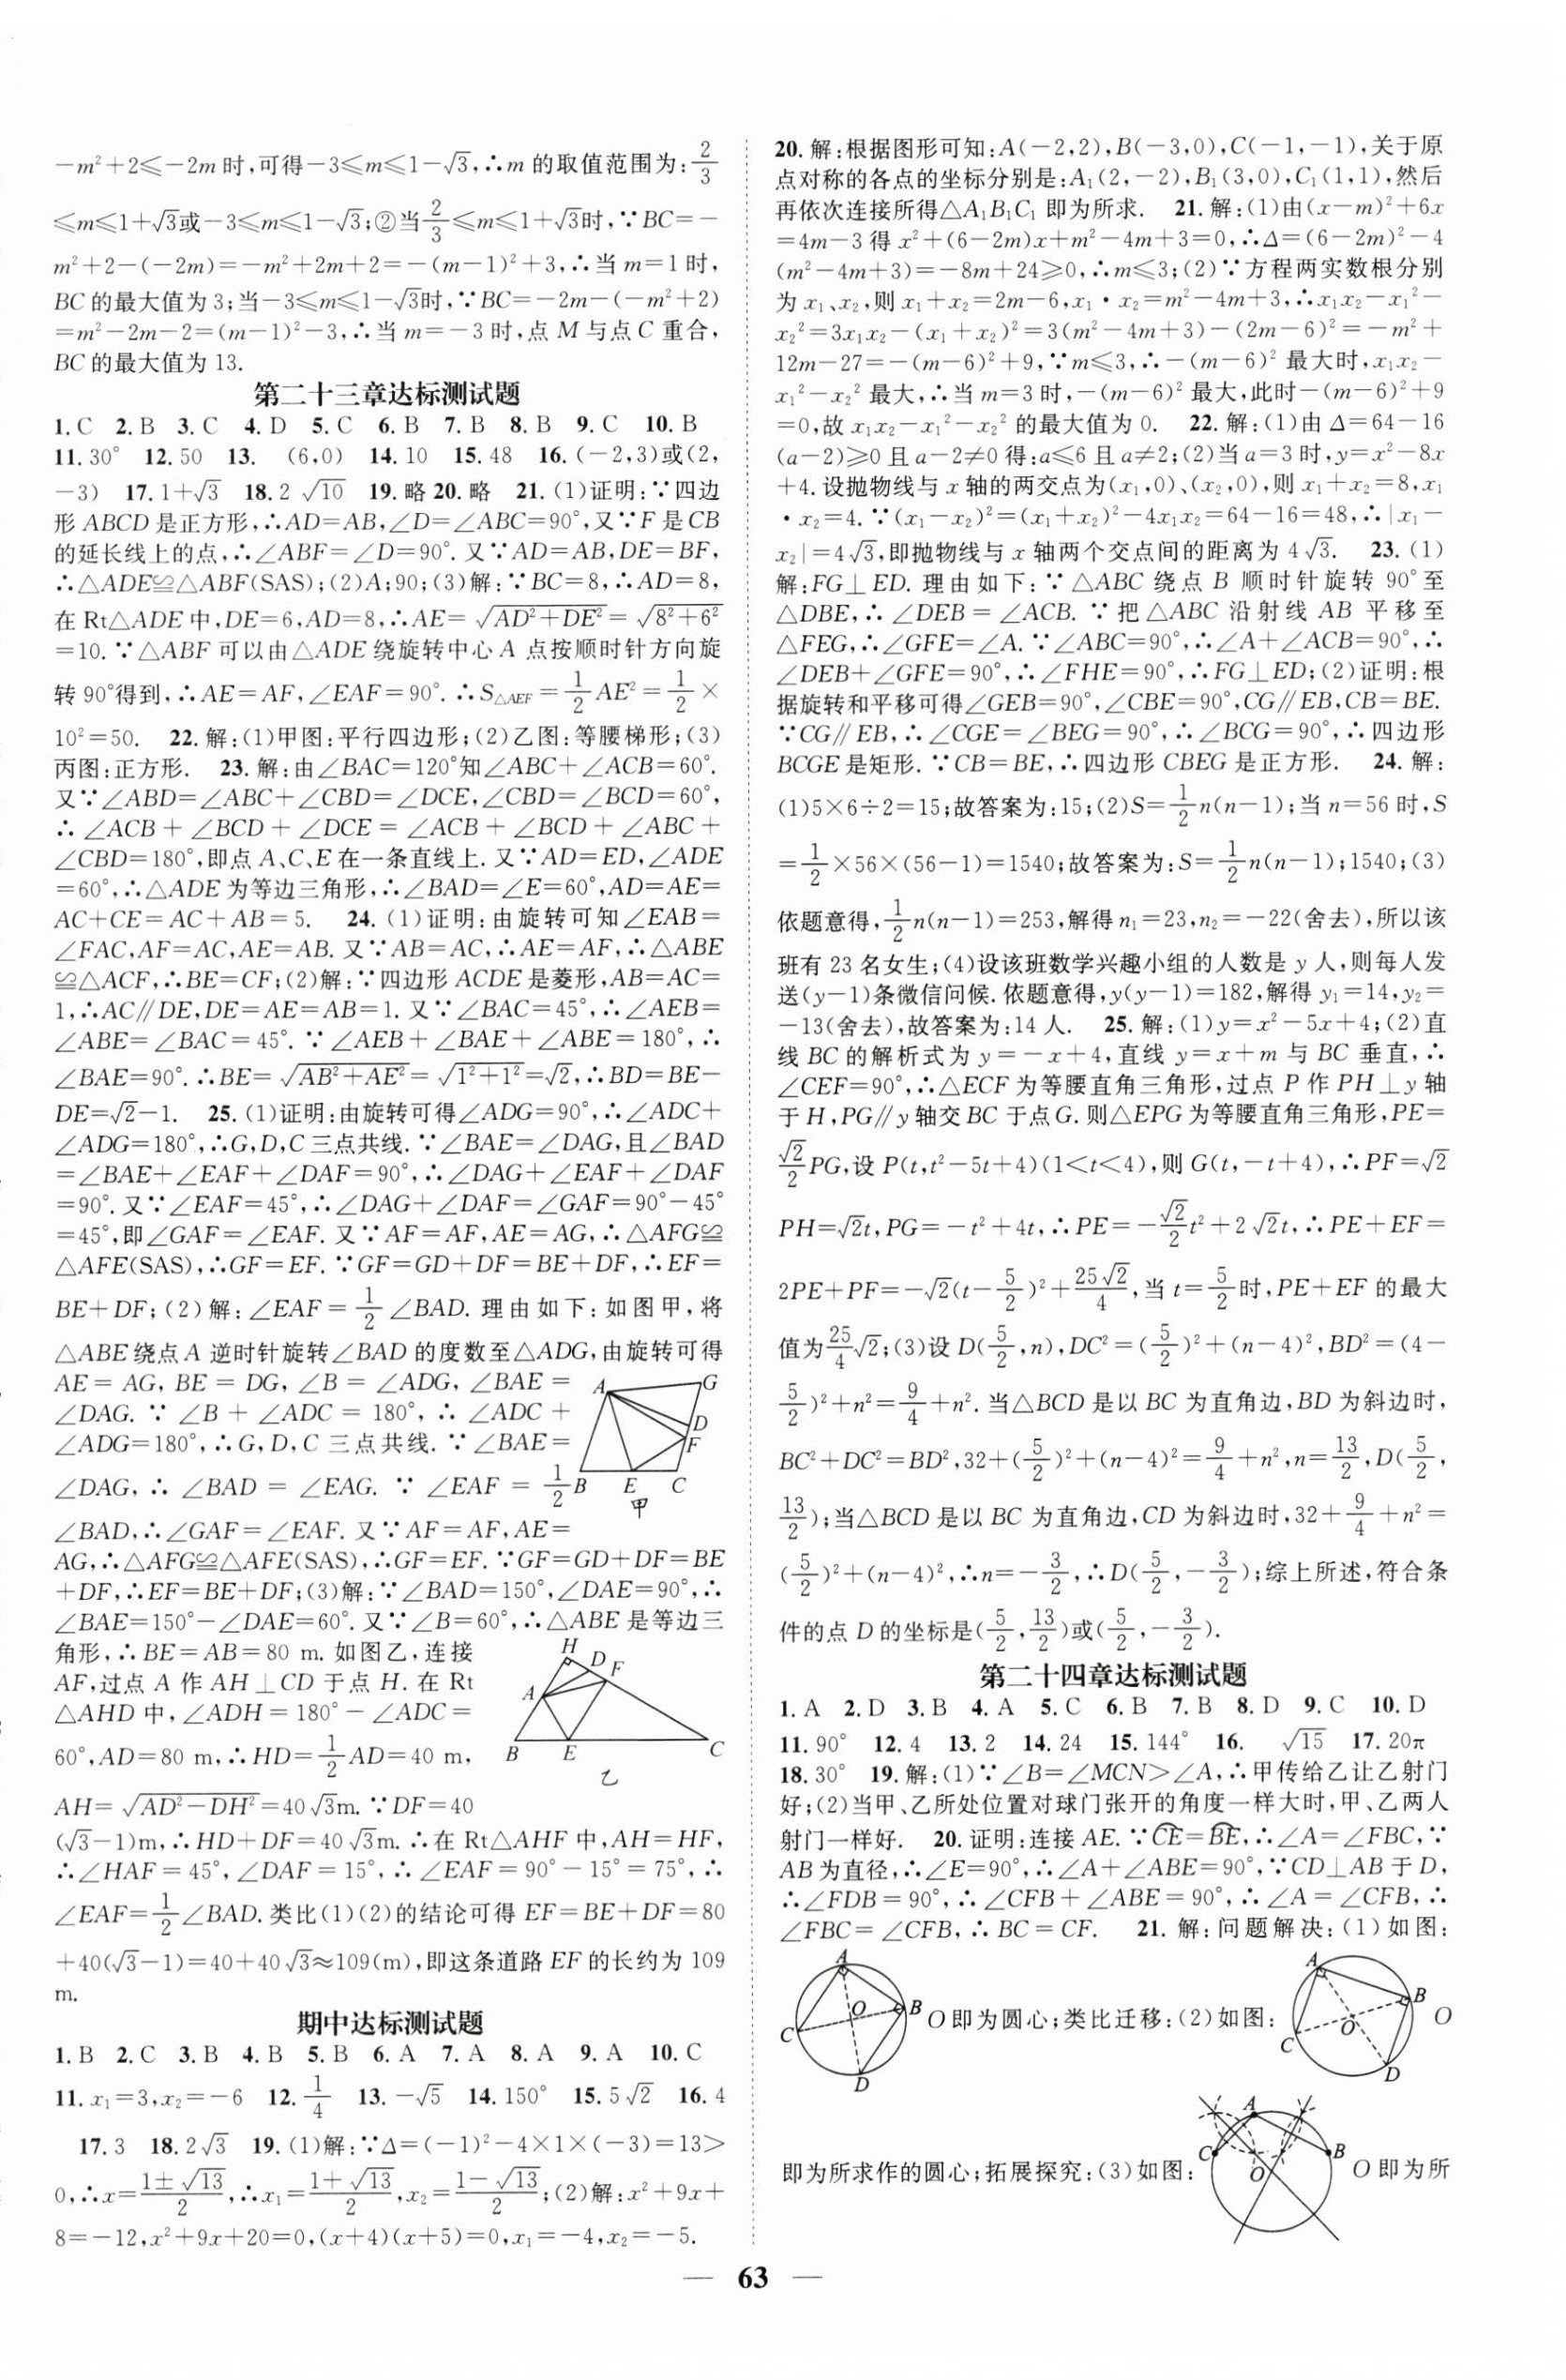 －m²＋2≤－2m时,可得－3≤m≤1－√3,∴m的取值范围为:2/3
≤m≤1＋√3或－3≤m≤1－√3;②当2/3≤m≤1＋√3时,∵BC＝－
m²＋2－(－2m)＝－m²＋2m＋2＝－(m－1)²＋3,∴当m＝1时,
BC的最大值为3;当－3≤m≤1－√3时,∵BC＝－2m－(－m²＋2)
＝m²－2m－2＝(m－1)²－3,∴当m＝－3时,点M与点C重合,
BC的最大值为13.
第二十三章达标测试题
1.C 2.B 3.C 4.D 5.C 6.B 7.B 8.B 9.C 10.B
11.30° 12.50 13. (6,0) 14.10 15.48 16.(－2,3)或(2,
－3) 17.1＋√3 18.2√10 19.略 20.略 21.(1)证明:∵四边
形ABCD是正方形,∴AD＝AB,∠D＝∠ABC＝90°,又∵F是CB
的延长线上的点,∴∠ABF＝∠D＝90°.又∵AD＝AB,DE＝BF,
∴△ADE≌△ABF(SAS);(2)A;90;(3)解:∵BC＝8,∴AD＝8,
在Rt△ADE中,DE＝6,AD＝8,∴AE＝√(AD²＋DE²)＝√(8²＋6²)
＝10.∵△ABF可以由△ADE绕旋转中心A点按顺时针方向旋
转90°得到,∴AE＝AF,∠EAF＝90°.∴S△AEF＝1/2AE²＝1/2×
10²＝50. 22.解:(1)甲图:平行四边形;(2)乙图:等腰梯形;(3)
丙图:正方形. 23.解:由∠BAC＝120°知∠ABC＋∠ACB＝60°.
又∵∠ABD＝∠ABC＋∠CBD＝∠DCE,∠CBD＝∠BCD＝60°,
∴∠ACB＋∠BCD＋∠DCE＝∠ACB＋∠BCD＋∠ABC＋
∠CBD＝180°,即点A、C、E在一条直线上.又∵AD＝ED,∠ADE
＝60°,∴△ADE为等边三角形,∴∠BAD＝∠E＝60°,AD＝AE＝
AC＋CE＝AC＋AB＝5. 24.(1)证明:由旋转可知∠EAB＝
∠FAC,AF＝AC,AE＝AB.又∵AB＝AC,∴AE＝AF,∴△ABE
≌△ACF,∴BE＝CF;(2)解:∵四边形ACDE是菱形,AB＝AC＝
1,∴AC∥DE,DE＝AE＝AB＝1.又∵∠BAC＝45°,∴∠AEB＝
∠ABE＝∠BAC＝45°.∵∠AEB＋∠BAE＋∠ABE＝180°,∴
∠BAE＝90°.∴BE＝√(AB²＋AE²)＝√(1²＋1²)＝√2,∴BD＝BE－
DE＝√2－1. 25.(1)证明:由旋转可得∠ADG＝90°,∴∠ADC＋
∠ADG＝180°,∴G,D,C三点共线.∵∠BAE＝∠DAG,且∠BAD
＝∠BAE＋∠EAF＋∠DAF＝90°,∴∠DAG＋∠EAF＋∠DAF
＝90°.又∵∠EAF＝45°,∴∠DAG＋∠DAF＝∠GAF＝90°－45°
＝45°,即∠GAF＝∠EAF.又∵AF＝AF,AE＝AG,∴△AFG≌
△AFE(SAS),∴GF＝EF.∵GF＝GD＋DF＝BE＋DF,∴EF＝
BE＋DF;(2)解:∠EAF＝1/2∠BAD.理由如下:如图甲,将
△ABE绕点A逆时针旋转∠BAD的度数至△ADG,由旋转可得
AE＝AG,BE＝DG,∠B＝∠ADG,∠BAE＝
∠DAG.∵∠B＋∠ADC＝180°,∴∠ADC＋
∠ADG＝180°,∴G,D,C三点共线.∵∠BAE＝
∠DAG,∴∠BAD＝∠EAG.∵∠EAF＝1/2
∠BAD,∴∠GAF＝∠EAF.又∵AF＝AF,AE＝
A G D F B E C
甲
AG,∴△AFG≌△AFE(SAS),∴GF＝EF.∵GF＝GD＋DF＝BE
＋DF,∴EF＝BE＋DF;(3)解:∵∠BAD＝150°,∠DAE＝90°,∴
∠BAE＝150°－∠DAE＝60°.又∵∠B＝60°,∴△ABE是等边三
角形,∴BE＝AB＝80 m.如图乙,连接
AF,过点A作AH⊥CD于点H.在Rt
△AHD中,∠ADH＝180°－∠ADC＝
60°,AD＝80 m,∴HD＝1/2AD＝40 m,
AH＝√(AD²－DH²)＝40√3m.∵DF＝40
H D F A B E C
乙
(√3－1)m,∴HD＋DF＝40√3m.∴在Rt△AHF中,AH＝HF,
∴∠HAF＝45°,∠DAF＝15°,∴∠EAF＝90°－15°＝75°,∴
∠EAF＝1/2∠BAD.类比(1)(2)的结论可得EF＝BE＋DF＝80
＋40(√3－1)＝40＋40√3≈109(m),即这条道路EF的长约为109
m.
期中达标测试题
1.B 2.C 3.B 4.B 5.B 6.A 7.A 8.A 9.A 10.C
11.x₁＝3,x₂＝－6 12.1/4 13.－√5 14.150° 15.5√2 16.4
17.3 18.2√3 19.(1)解:∵Δ＝(－1)²－4×1×(－3)＝13＞
0,∴x＝(1±√13)/2,∴x₁＝(1＋√13)/2,x₂＝(1－√13)/2;(2)解:x²＋9x＋
8＝－12,x²＋9x＋20＝0,(x＋4)(x＋5)＝0,x₁＝－4,x₂＝－5.
20.解:根据图形可知:A(－2,2),B(－3,0),C(－1,－1),关于原
点对称的各点的坐标分别是:A₁(2,－2),B₁(3,0),C₁(1,1),然后
再依次连接所得△A₁B₁C₁即为所求. 21.解:(1)由(x－m)²＋6x
＝4m－3得x²＋(6－2m)x＋m²－4m＋3＝0,∴Δ＝(6－2m)²－4
(m²－4m＋3)＝－8m＋24≥0,∴m≤3;(2)∵方程两实数根分别
为x₁、x₂,则x₁＋x₂＝2m－6,x₁·x₂＝m²－4m＋3,∴x₁x₂－x₁²－
x₂²＝3x₁x₂－(x₁＋x₂)²＝3(m²－4m＋3)－(2m－6)²＝－m²＋
12m－27＝－(m－6)²＋9,∵m≤3,∴－(m－6)²最大时,x₁x₂－
x₁²－x₂²最大,∴当m＝3时,－(m－6)²最大,此时－(m－6)²＋9
＝0,故x₁x₂－x₁²－x₂²的最大值为0. 22.解:(1)由Δ＝64－16
(a－2)≥0且a－2≠0得:a≤6且a≠2;(2)当a＝3时,y＝x²－8x
＋4.设抛物线与x轴的两交点为(x₁,0)、(x₂,0),则x₁＋x₂＝8,x₁
·x₂＝4.∵(x₁－x₂)²＝(x₁＋x₂)²－4x₁x₂＝64－16＝48,∴|x₁－
x₂|＝4√3,即抛物线与x轴两个交点间的距离为4√3. 23.(1)
解:FG⊥ED.理由如下:∵△ABC绕点B顺时针旋转90°至
△DBE,∴∠DEB＝∠ACB.∵把△ABC沿射线AB平移至
△FEG,∴∠GFE＝∠A.∵∠ABC＝90°,∴∠A＋∠ACB＝90°,∴
∠DEB＋∠GFE＝90°,∴∠FHE＝90°,∴FG⊥ED;(2)证明:根
据旋转和平移可得∠GEB＝90°,∠CBE＝90°,CG∥EB,CB＝BE.
∵CG∥EB,∴∠CGE＝∠BEG＝90°,∴∠BCG＝90°,∴四边形
BCGE是矩形.∵CB＝BE,∴四边形CBEG是正方形. 24.解:
(1)5×6÷2＝15;故答案为:15;(2)S＝1/2n(n－1);当n＝56时,S
＝1/2×56×(56－1)＝1540;故答案为:S＝1/2n(n－1);1540;(3)
依题意得,1/2n(n－1)＝253,解得n₁＝23,n₂＝－22(舍去),所以该
班有23名女生;(4)设该班数学兴趣小组的人数是y人,则每人发
送(y－1)条微信问候.依题意得,y(y－1)＝182,解得y₁＝14,y₂＝
－13(舍去),故答案为:14人. 25.解:(1)y＝x²－5x＋4;(2)直
线BC的解析式为y＝－x＋4,直线y＝x＋m与BC垂直,∴
∠CEF＝90°,∴△ECF为等腰直角三角形,过点P作PH⊥y轴
于H,PG∥y轴交BC于点G.则△EPG为等腰直角三角形,PE＝
√2/2PG,设P(t,t²－5t＋4)(1＜t＜4),则G(t,－t＋4),∴PF＝√2
PH＝√2t,PG＝－t²＋4t,∴PE＝－√2/2t²＋2√2t,∴PE＋EF＝
2PE＋PF＝－√2(t－5/2)²＋25√2/4,当t＝5/2时,PE＋EF的最大
值为25/4√2;(3)设D(5/2,n),DC²＝(5/2)²＋(n－4)²,BD²＝(4－
5/2)²＋n²＝9/4＋n².当△BCD是以BC为直角边,BD为斜边时,
BC²＋DC²＝BD²,32＋(5/2)²＋(n－4)²＝9/4＋n²,n＝13/2,D(5/2,
13/2);当△BCD是以BC为直角边,CD为斜边时,32＋9/4＋n²＝
(5/2)²＋(n－4)²,∴n＝－3/2,∴D(5/2,－3/2);综上所述,符合条
件的点D的坐标是(5/2,13/2)或(5/2,－3/2).
第二十四章达标测试题
1.A 2.D 3.B 4.A 5.C 6.B 7.B 8.D 9.C 10.D
11.90° 12.4 13.2 14.24 15.144° 16. √15 17.20π
18.30° 19.解:(1)∵∠B＝∠MCN＞∠A,∴甲传给乙让乙射门
好;(2)当甲、乙所处位置对球门张开的角度一样大时,甲、乙两人
射门一样好. 20.证明:连接AE.∵⌒CE＝⌒BE,∴∠A＝∠FBC,∵
AB为直径,∴∠E＝90°,∴∠A＋∠ABE＝90°,∵CD⊥AB于D,
∴∠FDB＝90°,∴∠CFB＋∠ABE＝90°,∴∠A＝∠CFB,∴
∠FBC＝∠CFB,∴BC＝CF. 21.解:问题解决:(1)如图:
A O B C D O即为圆心;类比迁移:(2)如图: A B O C D O
即为所求作的圆心;拓展探究:(3)如图: A C B O O即为所
63